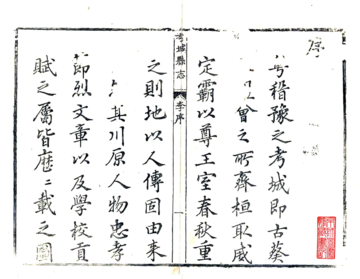 序
稽豫之考城即古葵
會之所齊桓取威
定霸以尊王室春秋重
考城縣志
李序
一
之則地以人傳固由来
其川原人物忠孝
節烈文章以及學校貢
賦之屬皆歷〻載之圖